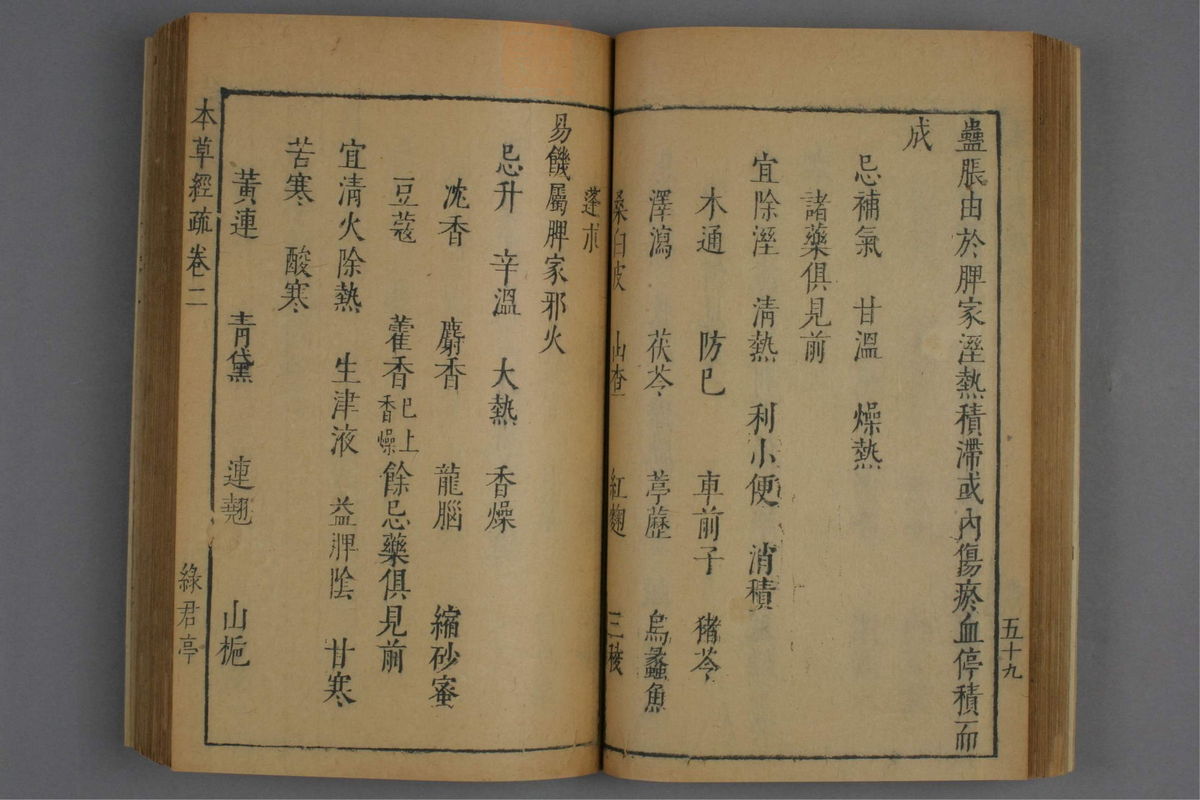 蠱脹由於脾家溼熱積滯或內傷瘀血停積而
成
忌補氣　甘溫　燥熱
諸藥俱見前
宜除溼　清熱　利小便　消積
木通　防巳　車前子　豬苓
澤瀉　茯苓　葶藶　烏蠡魚
桑白皮　山查　紅麴　三稜
五十九
蓬朮
易饑屬脾家邪火
忌升　辛溫　大熱　香燥
沈香　麝香　龍腦　縮砂蜜
豆蔻　藿香巳上香燥餘忌藥俱見前
宜清火除熱　生津液　益脾陰　甘寒
苦寒　酸寒
黃連　青黛　連翹　山梔
本草經疏卷二
綠君亭